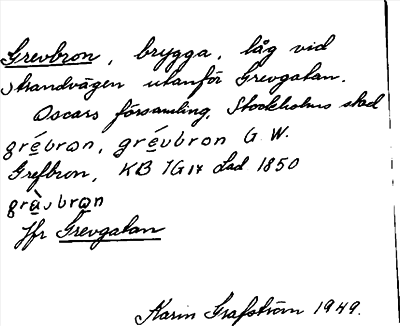 Grevbron, brygga, låg vid
Strandvägen utanför Grevgatan.
Oscars församling, Stockholms stad
grébron, grévbron G. W.
Grefbron, KB 1G14 Lad 1850
gràvbron
Jfr Grevgatan
Karin Grafström 1949.